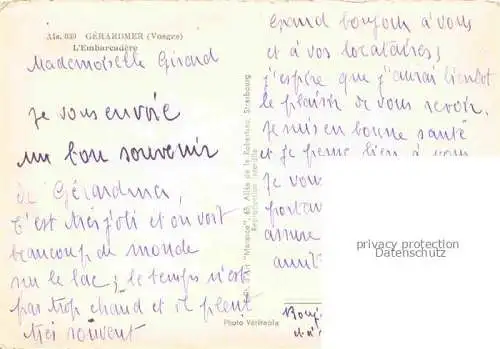 Als. 039 GÉRARDMER (Vosges)
L'Embarcadère
Mademoiselle Girard
je vous envoie
un bon souvenir
de Gérardmer,
c'est très joli et on voit
beaucoup de monde
sur le lac; le temps n'est
pas trop chaud et il pleut
très souvent
Edit. d'Art "Marasco", 65, Allée de la Robertsau, Strasbourg
Reproduction interdite
Photo Véritable
Grand bonjour à vous
et à vos locataires;
j'espère que j'aurai bientôt
le plaisir de vous revoir.
Je suis en bonne santé
et je pense bien à vous
je vou
portan
assure
amit
privacy protection
Datenschutz
Bonj